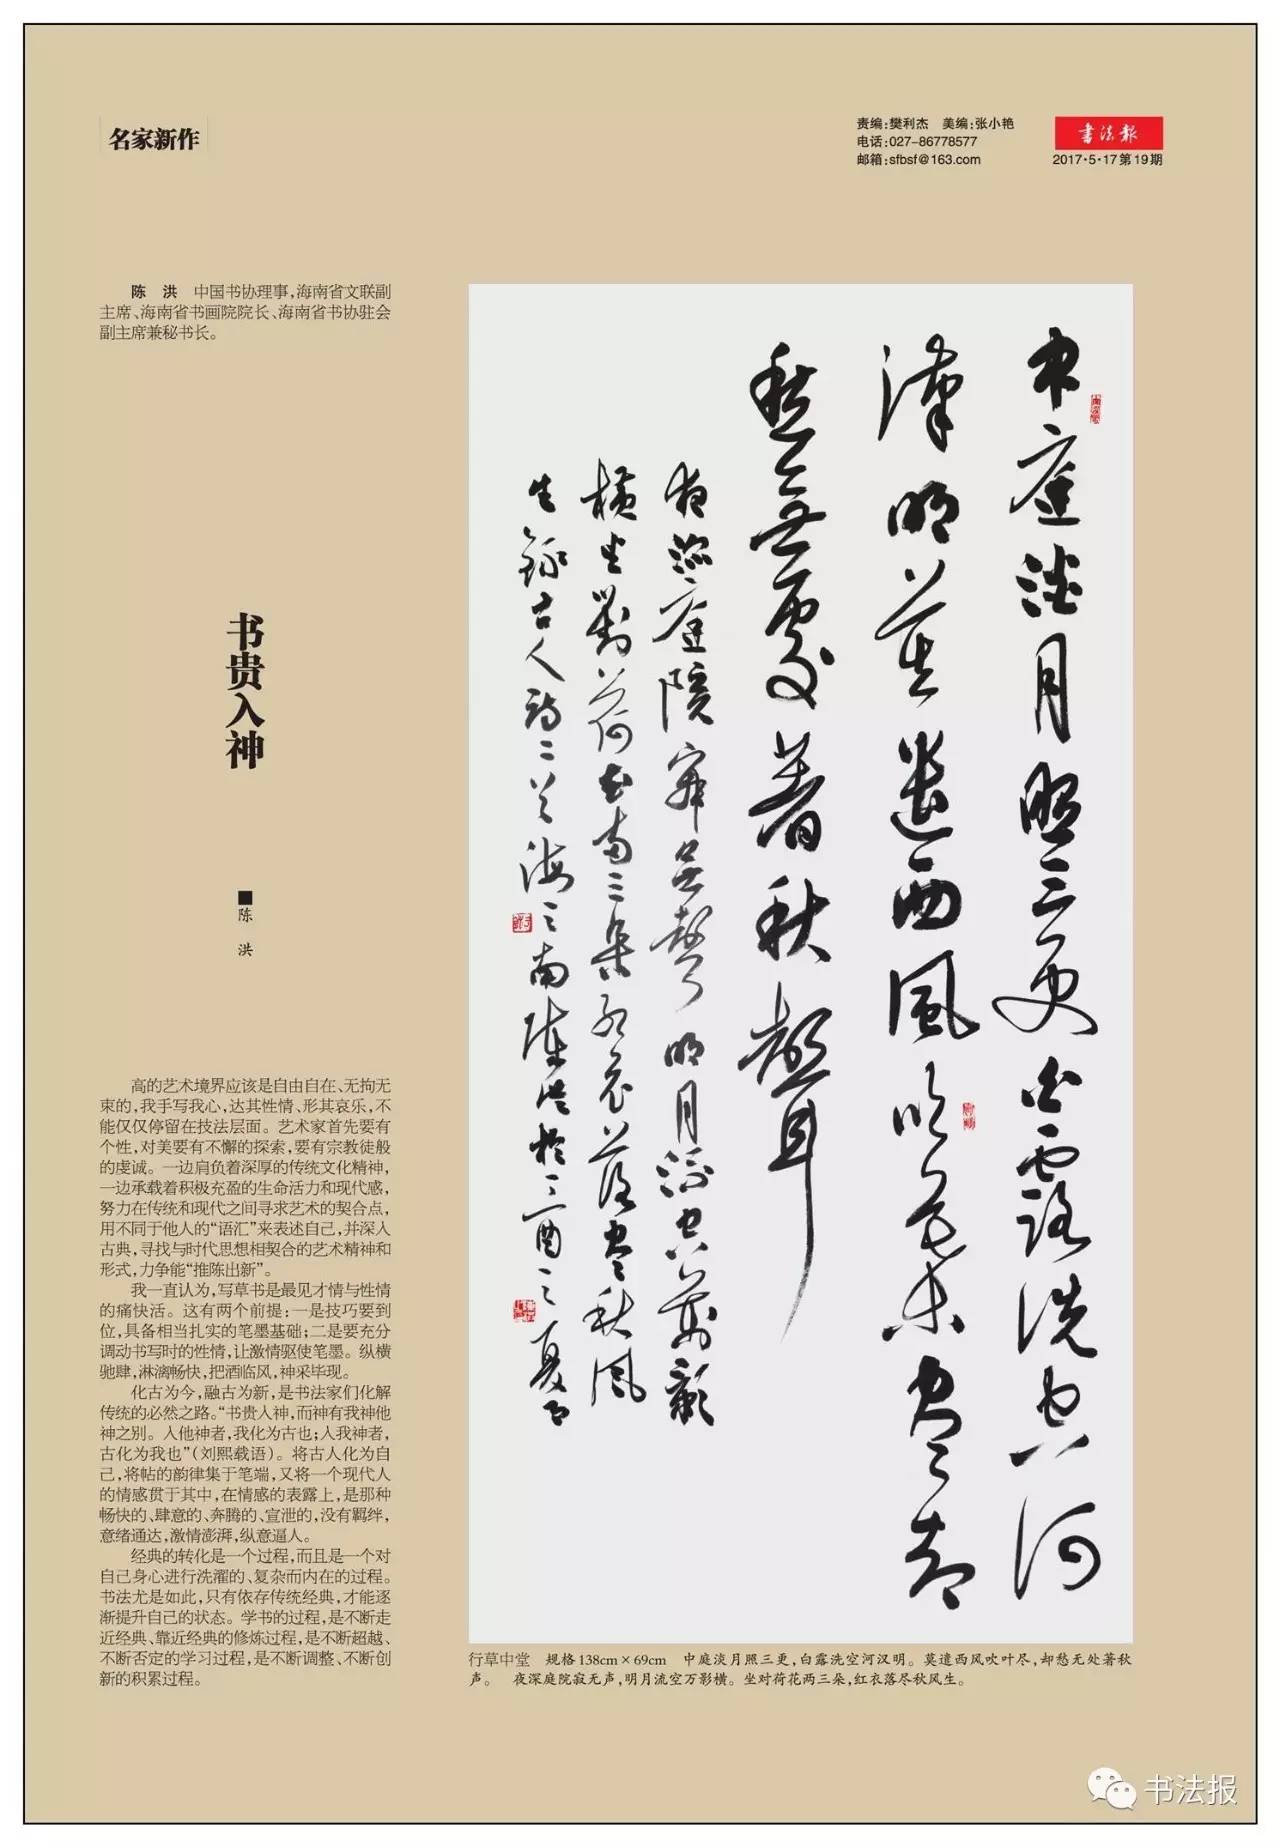 名家新作
责编:樊利杰 美编:张小艳
电话:027-86778577
邮箱:sfbsf@163.com
书法报
2017·5·17第19期
陈 洪 中国书协理事,海南省文联副
主席、海南省书画院院长、海南省书协驻会
副主席兼秘书长。
书贵入神
■陈 洪
高的艺术境界应该是自由自在、无拘无
束的,我手写我心,达其性情、形其哀乐,不
能仅仅停留在技法层面。艺术家首先要有
个性,对美要有不懈的探索,要有宗教徒般
的虔诚。一边肩负着深厚的传统文化精神,
一边承载着积极充盈的生命活力和现代感,
努力在传统和现代之间寻求艺术的契合点,
用不同于他人的“语汇”来表述自己,并深入
古典,寻找与时代思想相契合的艺术精神和
形式,力争能“推陈出新”。
我一直认为,写草书是最见才情与性情
的痛快活。这有两个前提:一是技巧要到
位,具备相当扎实的笔墨基础;二是要充分
调动书写时的性情,让激情驱使笔墨。纵横
驰肆,淋漓畅快,把酒临风,神采毕现。
化古为今,融古为新,是书法家们化解
传统的必然之路。“书贵入神,而神有我神他
神之别。入他神者,我化为古也;入我神者,
古化为我也”(刘熙载语)。将古人化为自
己,将帖的韵律集于笔端,又将一个现代人
的情感贯于其中,在情感的表露上,是那种
畅快的、肆意的、奔腾的、宣泄的,没有羁绊,
意绪通达,激情澎湃,纵意逼人。
经典的转化是一个过程,而且是一个对
自己身心进行洗濯的、复杂而内在的过程。
书法尤是如此,只有依存传统经典,才能逐
渐提升自己的状态。学书的过程,是不断走
近经典、靠近经典的修炼过程,是不断超越、
不断否定的学习过程,是不断调整、不断创
新的积累过程。
中庭淡月照三更白露洗空河
漢明莫遣西風吹葉盡却
愁無處著秋聲
夜深庭院寂無聲明月流空萬影
橫坐對荷花兩三朵紅衣落盡秋風
生録古人詩二首海之南陳洪於丁酉之夏
行草中堂 规格138cm×69cm 中庭淡月照三更,白露洗空河汉明。莫遣西风吹叶尽,却愁无处著秋
声。 夜深庭院寂无声,明月流空万影横。坐对荷花两三朵,红衣落尽秋风生。
书法报